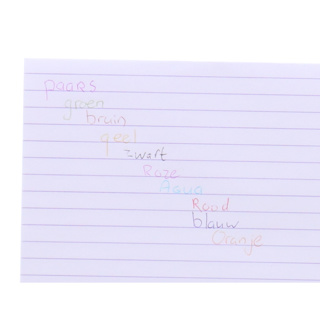 paars
groen
bruin
geel
zwart
Roze
Aqua
Rood
blauw
Oranje